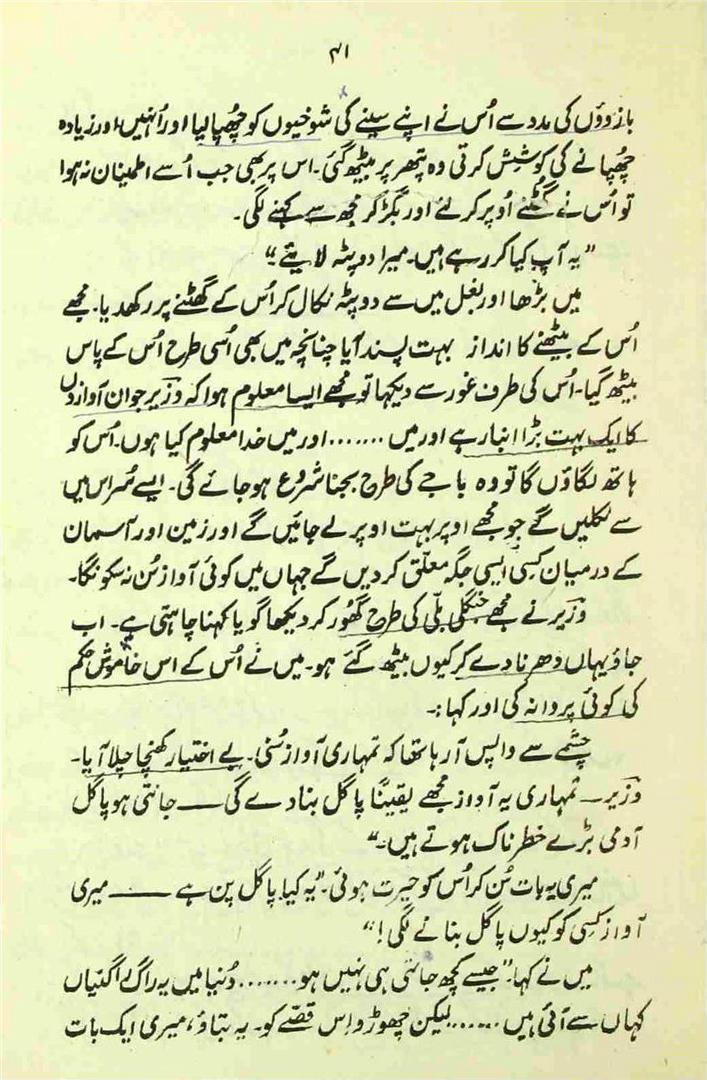 ۴۱
بازوؤں کی مدد سے اُس نے اپنے سینے کی شوخیوں کو چھپا لیا اور اُنہیں اور زیادہ
چھپانے کی کوشش کرتی وہ پتھر پر بیٹھ گئی۔ اس پر بھی جب اُسے اطمینان نہ ہوا
تو اُس نے گھٹنے اُوپر کر لئے اور بگڑ کر مجھ سے کہنے لگی۔
"یہ آپ کیا کر رہے ہیں۔ میرا دوپٹہ لائیے۔"
میں بڑھا اور بغل میں سے دوپٹہ نکال کر اُس کے گھٹنے پر رکھ دیا۔ مجھے
اُس کے بیٹھنے کا انداز بہت پسند آیا چنانچہ میں بھی اُسی طرح اُس کے پاس
بیٹھ گیا۔ اُس کی طرف غور سے دیکھا تو مجھے ایسا معلوم ہوا کہ وزیر جوان آوازوں
کا ایک بہت بڑا انبار ہے اور میں ....... اور میں خدا معلوم کیا ہوں۔ اُس کو
ہاتھ لگاؤں گا تو وہ باجے کی طرح بجنا شروع ہو جائے گی۔ ایسے سُر اس میں
سے نکلیں گے جو مجھے اوپر بہت اوپر لے جائیں گے اور زمین اور آسمان
کے درمیان کسی ایسی جگہ معلّق کر دیں گے جہاں میں کوئی آواز سُن نہ سکونگا۔
وزیر نے مجھے جنگلی بلّی کی طرح گھُور کر دیکھا گویا کہنا چاہتی ہے۔ اب
جاؤ یہاں دھرنا دے کر کیوں بیٹھ گئے ہو۔ میں نے اُس کے اس خاموش حکم
کی کوئی پروا نہ کی اور کہا:۔
چشمے سے واپس آ رہا تھا کہ تمہاری آواز سُنی۔ بے اختیار کھنچا چلا آیا۔
وزیر — تمہاری یہ آواز مجھے یقینًا پاگل بنا دے گی — جانتی ہو پاگل
آدمی بڑے خطرناک ہوتے ہیں۔"
میری یہ بات سُن کر اُس کو حیرت ہوئی۔ "یہ کیا پاگل پن ہے — میری
آواز کسی کو کیوں پاگل بنانے لگی!"
میں نے کہا۔ "جیسے کچھ جانتی ہی نہیں ہو ....... دُنیا میں یہ راگ راگنیاں
کہاں سے آئی ہیں ....... لیکن چھوڑو اِس قصّے کو۔ یہ بتاؤ، میری ایک بات